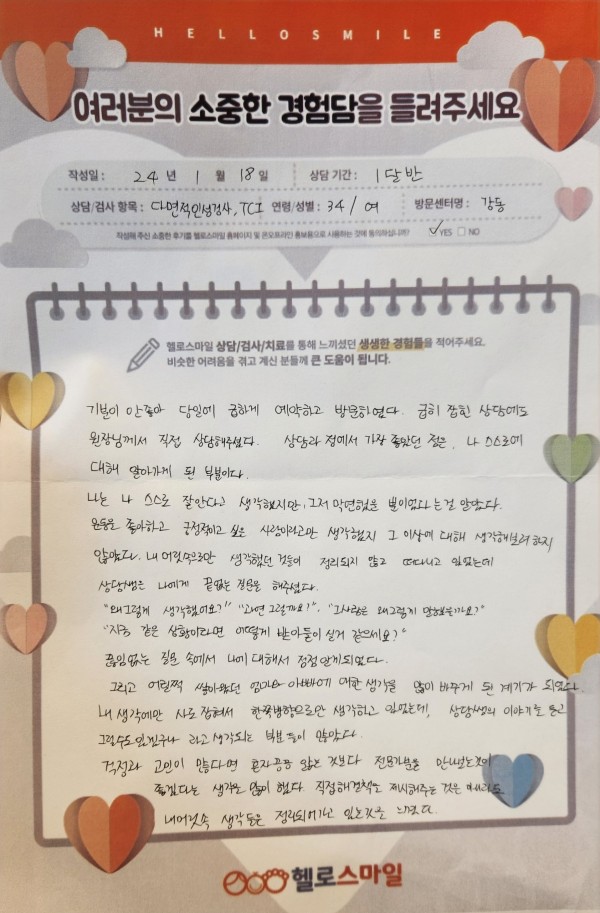 HELLOSMILE
여러분의 소중한 경험담을 들려주세요
작성일 : 24 년 1 월 18 일 상담 기간 : 1달반
상담/검사 항목 : 다면적인성검사, TCI 연령/성별 : 34 / 여 방문센터명 : 강동
작성해 주신 소중한 후기를 헬로스마일 홈페이지 및 온오프라인 홍보용으로 사용하는 것에 동의하십니까? ✓YES □ NO
헬로스마일 상담/검사/치료를 통해 느끼셨던 생생한 경험들을 적어주세요.
비슷한 어려움을 겪고 계신 분들께 큰 도움이 됩니다.
기분이 안좋아 당일에 급하게 예약하고 방문하였다. 급히 잡힌 상담에도
원장님께서 직접 상담해주셨다. 상담과정에서 가장 좋았던 점은, 나 스스로에
대해 알아가게 된 부분이다.
나는 나 스스로 잘안다고 생각했지만, 그저 막연했을 뿐이었다는걸 알았다.
운동을 좋아하고 긍정적이고 싶은 사람이라고만 생각했지 그 이상에 대해 생각해보려 하지
않았다. 내 머릿속으로만 생각했던 것들이 정리되지 않고 떠다니고 있었는데
상담샘은 나에게 끝없는 질문을 해주셨다.
"왜그렇게 생각했어요?" "과연 그럴까요?", "그사람은 왜그렇게 말했을까요?"
"지금 같은 상황이라면 어떻게 받아들이실거 같으세요?"
끊임없는 질문 속에서 나에 대해서 점점 알게되었다.
그리고 어릴적 쌓아왔던 엄마와 아빠에 대한 생각을 많이 바꾸게 된 계기가 되었다.
내 생각에만 사로잡혀서 한쪽방향으로만 생각하고 있었는데, 상담샘의 이야기를 듣고
그럴수도있겠구나 라고 생각되는 부분들이 많았다.
걱정과 고민이 많다면 혼자 끙끙 앓는 것보다 전문가분을 만나보는것이
좋겠다는 생각을 많이 했다. 직접해결책을 제시해주는 것은 아니라도
내머릿속 생각들은 정리되어가고 있는것을 느꼈다.
헬로스마일